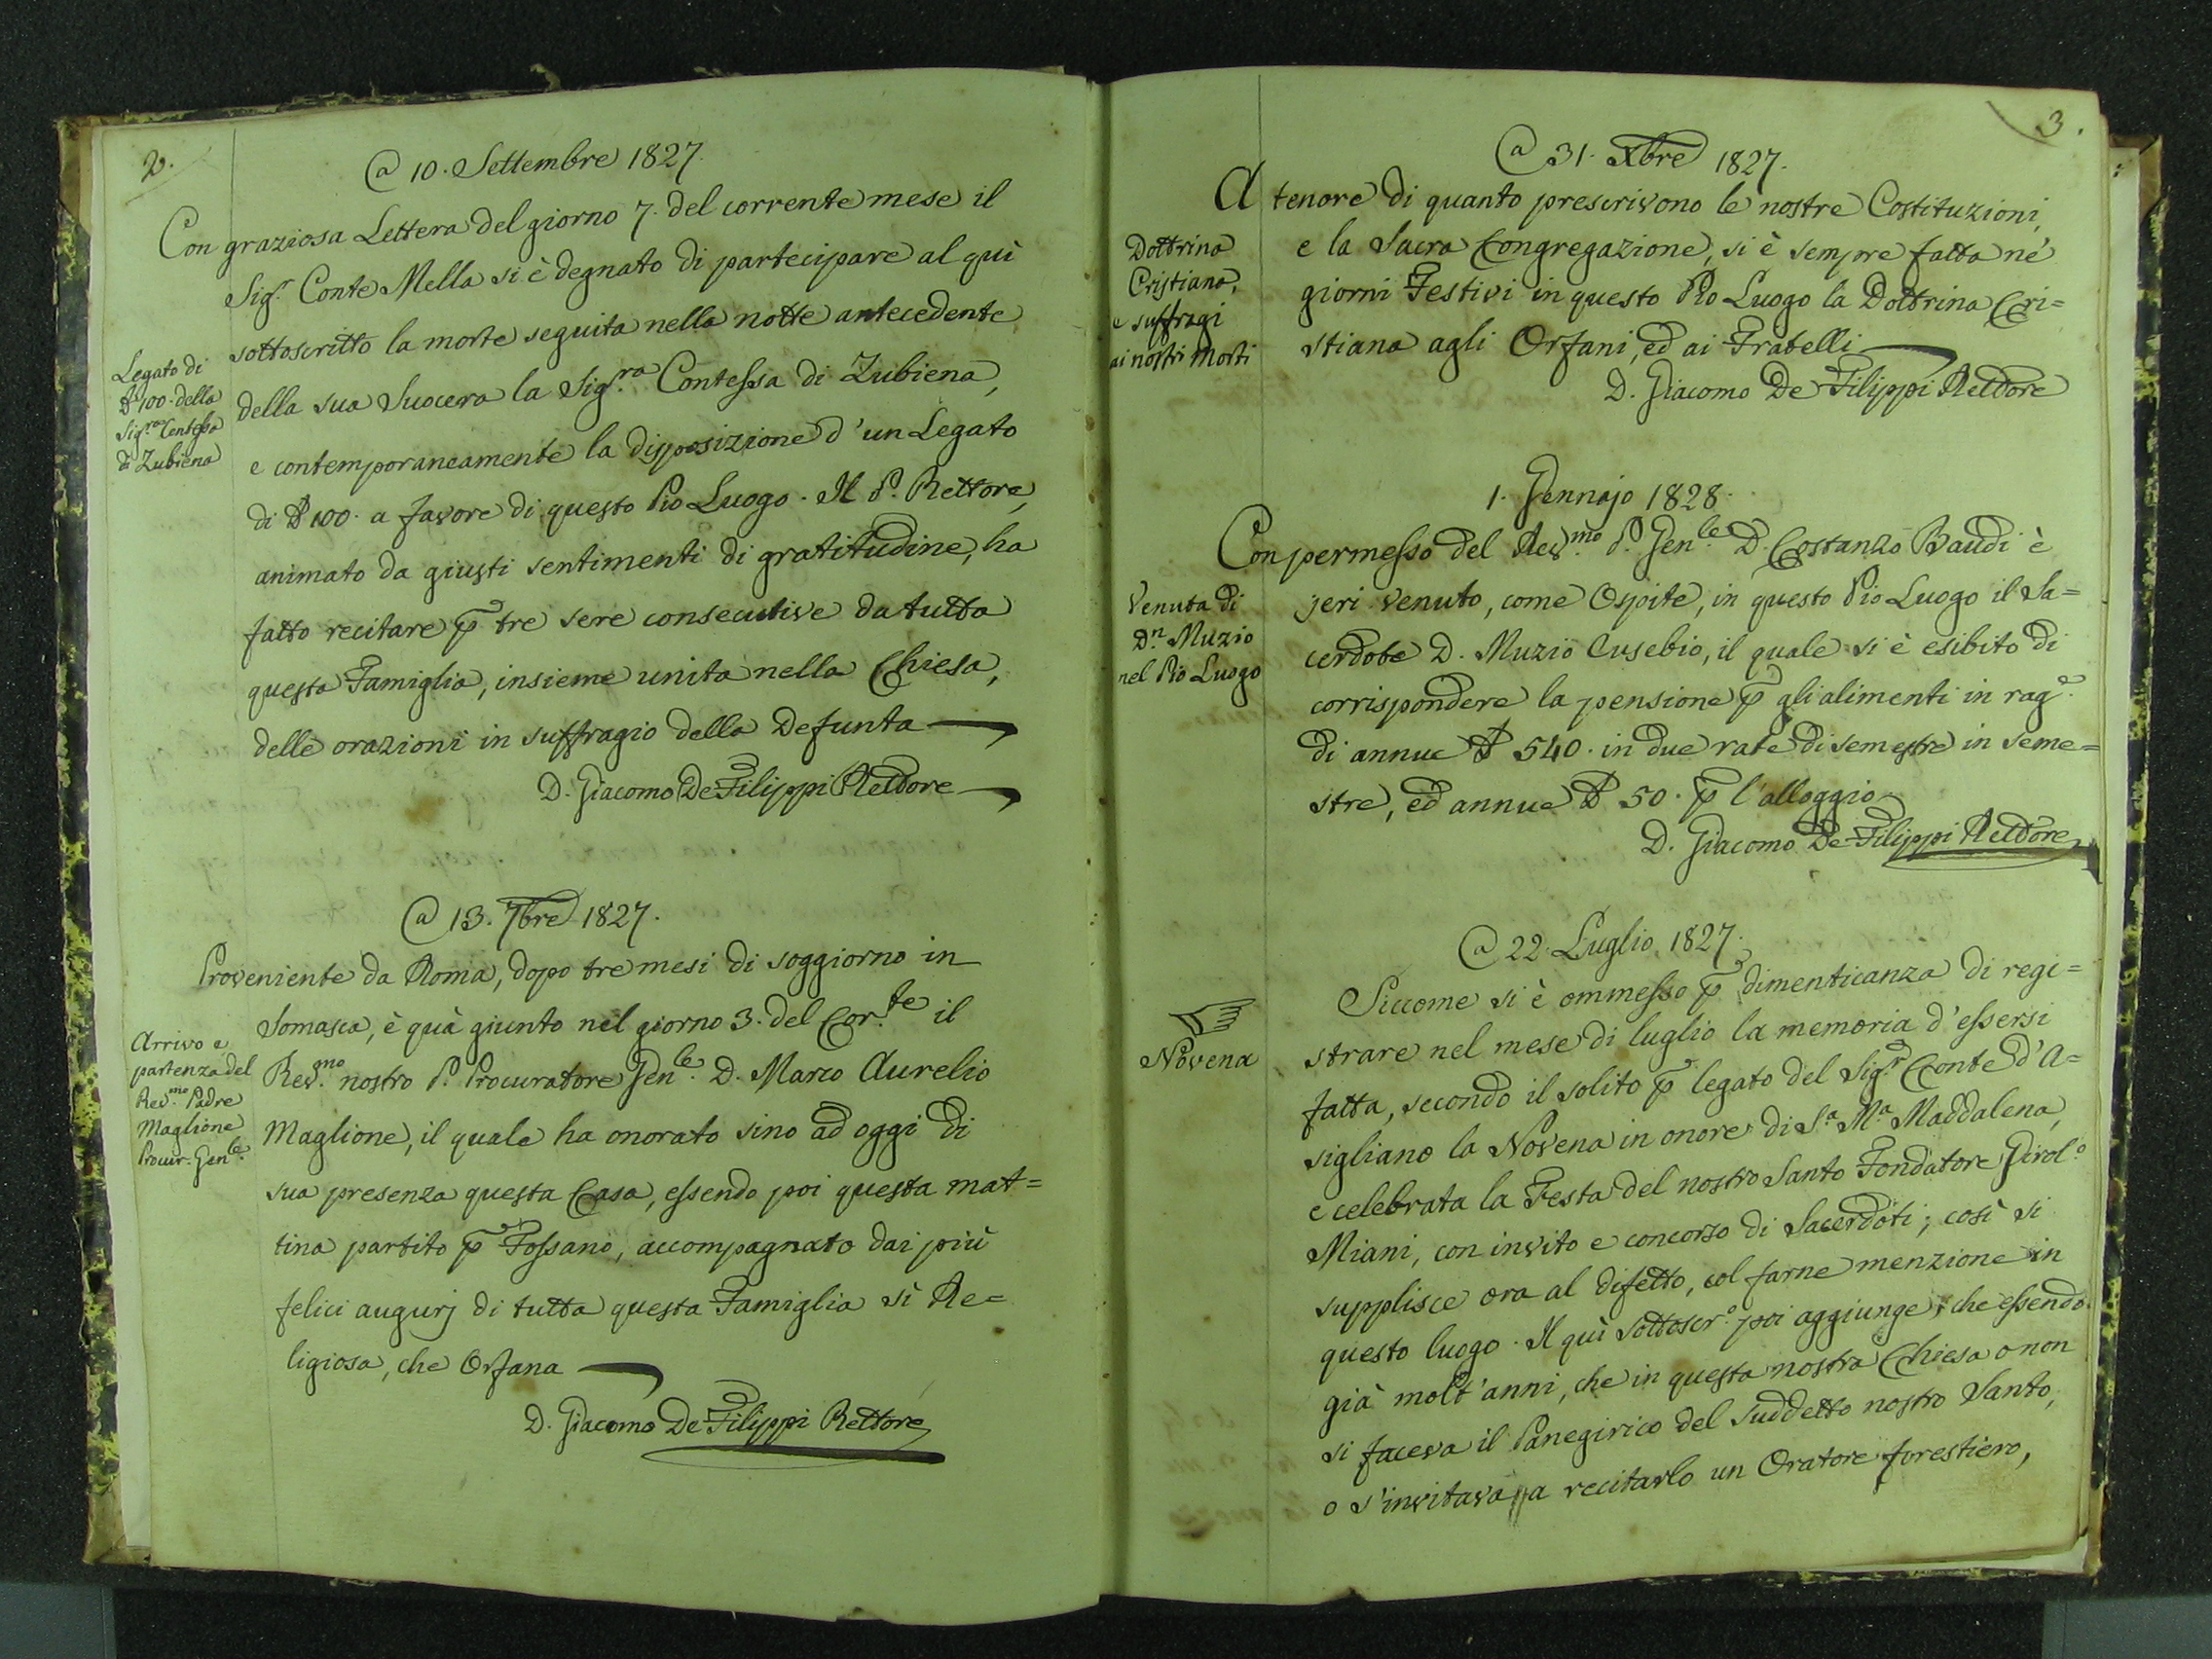 2.
@ 10. Settembre 1827.
Con graziosa Lettera del giorno 7. del corrente mese il
Sig.r Conte Mella si è degnato di partecipare al quì
sottoscritto la morte seguita nella notte antecedente
della sua Suocera la Sig.ra Contessa di Zubiena,
e contemporaneamente la disposizione d'un Legato
di ₶ 100. a favore di questo Pio Luogo. Il P. Rettore,
animato da giusti sentimenti di gratitudine, ha
fatto recitare p̄ tre sere consecutive da tutta
questa Famiglia, insieme unita nella Chiesa,
delle orazioni in suffragio della Defunta
D. Giacomo De Filippi Rettore
Legato di
₶ 100. della
Sig.ra Contessa
di Zubiena
@ 13. 7bre 1827.
Proveniente da Roma, dopo tre mesi di soggiorno in
Somasca, è quà giunto nel giorno 3. del Cor.te il
Rev.mo nostro P. Procuratore Gen.le D. Marco Aurelio
Maglione, il quale ha onorato sino ad oggi di
sua presenza questa Casa, essendo poi questa mat=
tina partito p̄ Fossano, accompagnato dai più
felici augurj di tutta questa Famiglia sì Re=
ligiosa, che Orfana
D. Giacomo De Filippi Rettore
Arrivo e
partenza del
Rev.mo Padre
Maglione
Procur. Gen.le
3.
@ 31. Xbre 1827.
A tenore di quanto prescrivono le nostre Costituzioni,
e la Sacra Congregazione, si è sempre fatta né
giorni Festivi in questo Pio Luogo la Dottrina Cri=
stiana agli Orfani, ed ai Fratelli
D. Giacomo De Filippi Rettore
Dottrina
Cristiana,
e suffragi
ai nostri Morti
1. Gennajo 1828.
Con permesso del Rev.mo P. Gen.le D. Costanzo Baudi è
jeri venuto, come Ospite, in questo Pio Luogo il Sa=
cerdote D. Muzio Eusebio, il quale si è esibito di
corrispondere la pensione p̄ gli alimenti in rag.e
di annue ₶ 540. in due rate di semestre in seme=
stre, ed annue ₶ 50. p̄ l'alloggio
D. Giacomo De Filippi Rettore
Venuta di
D.n Muzio
nel Pio Luogo
@ 22. Luglio 1827.
Siccome si è ommesso p̄ dimenticanza di regi=
strare nel mese di luglio la memoria d'essersi
fatta, secondo il solito p̄ legato del Sig.r Conte d'A=
sigliano la Novena in onore di S.a M.a Maddalena,
e celebrata la Festa del nostro Santo Fondatore Girol.o
Miani, con invito e concorso di Sacerdoti; così si
supplisce ora al difetto, col farne menzione in
questo luogo. Il quì Sottoscr.o poi aggiunge, che essendo
già molt'anni, che in questa nostra Chiesa o non
si faceva il Panegirico del suddetto nostro Santo,
o s'invitava a recitarlo un Oratore forestiero,
Novena